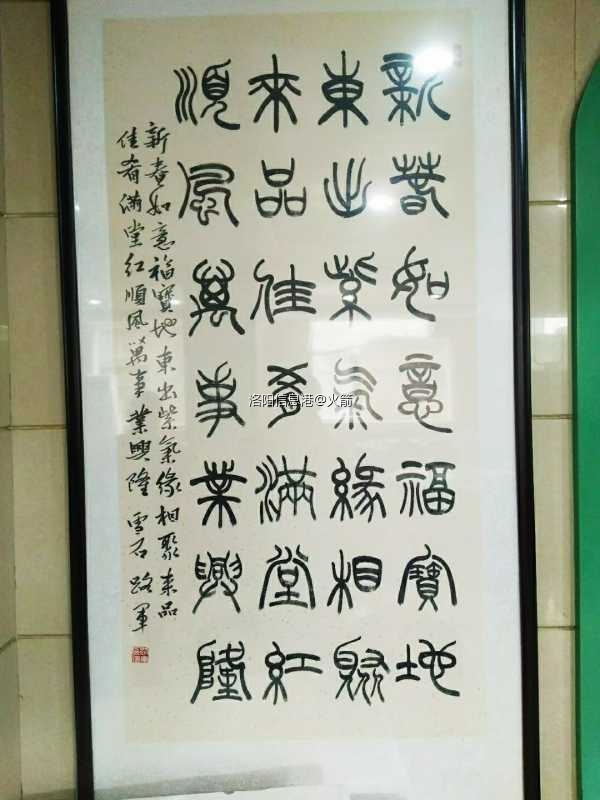 新春如意福寶地
東出紫氣緣相聚
來品佳肴滿堂紅
順風萬事業興隆
新春如意福寶地東出紫氣緣相聚來品
佳肴滿堂紅順風萬事業興隆 雪石 路軍
洛阳信息港@火箭